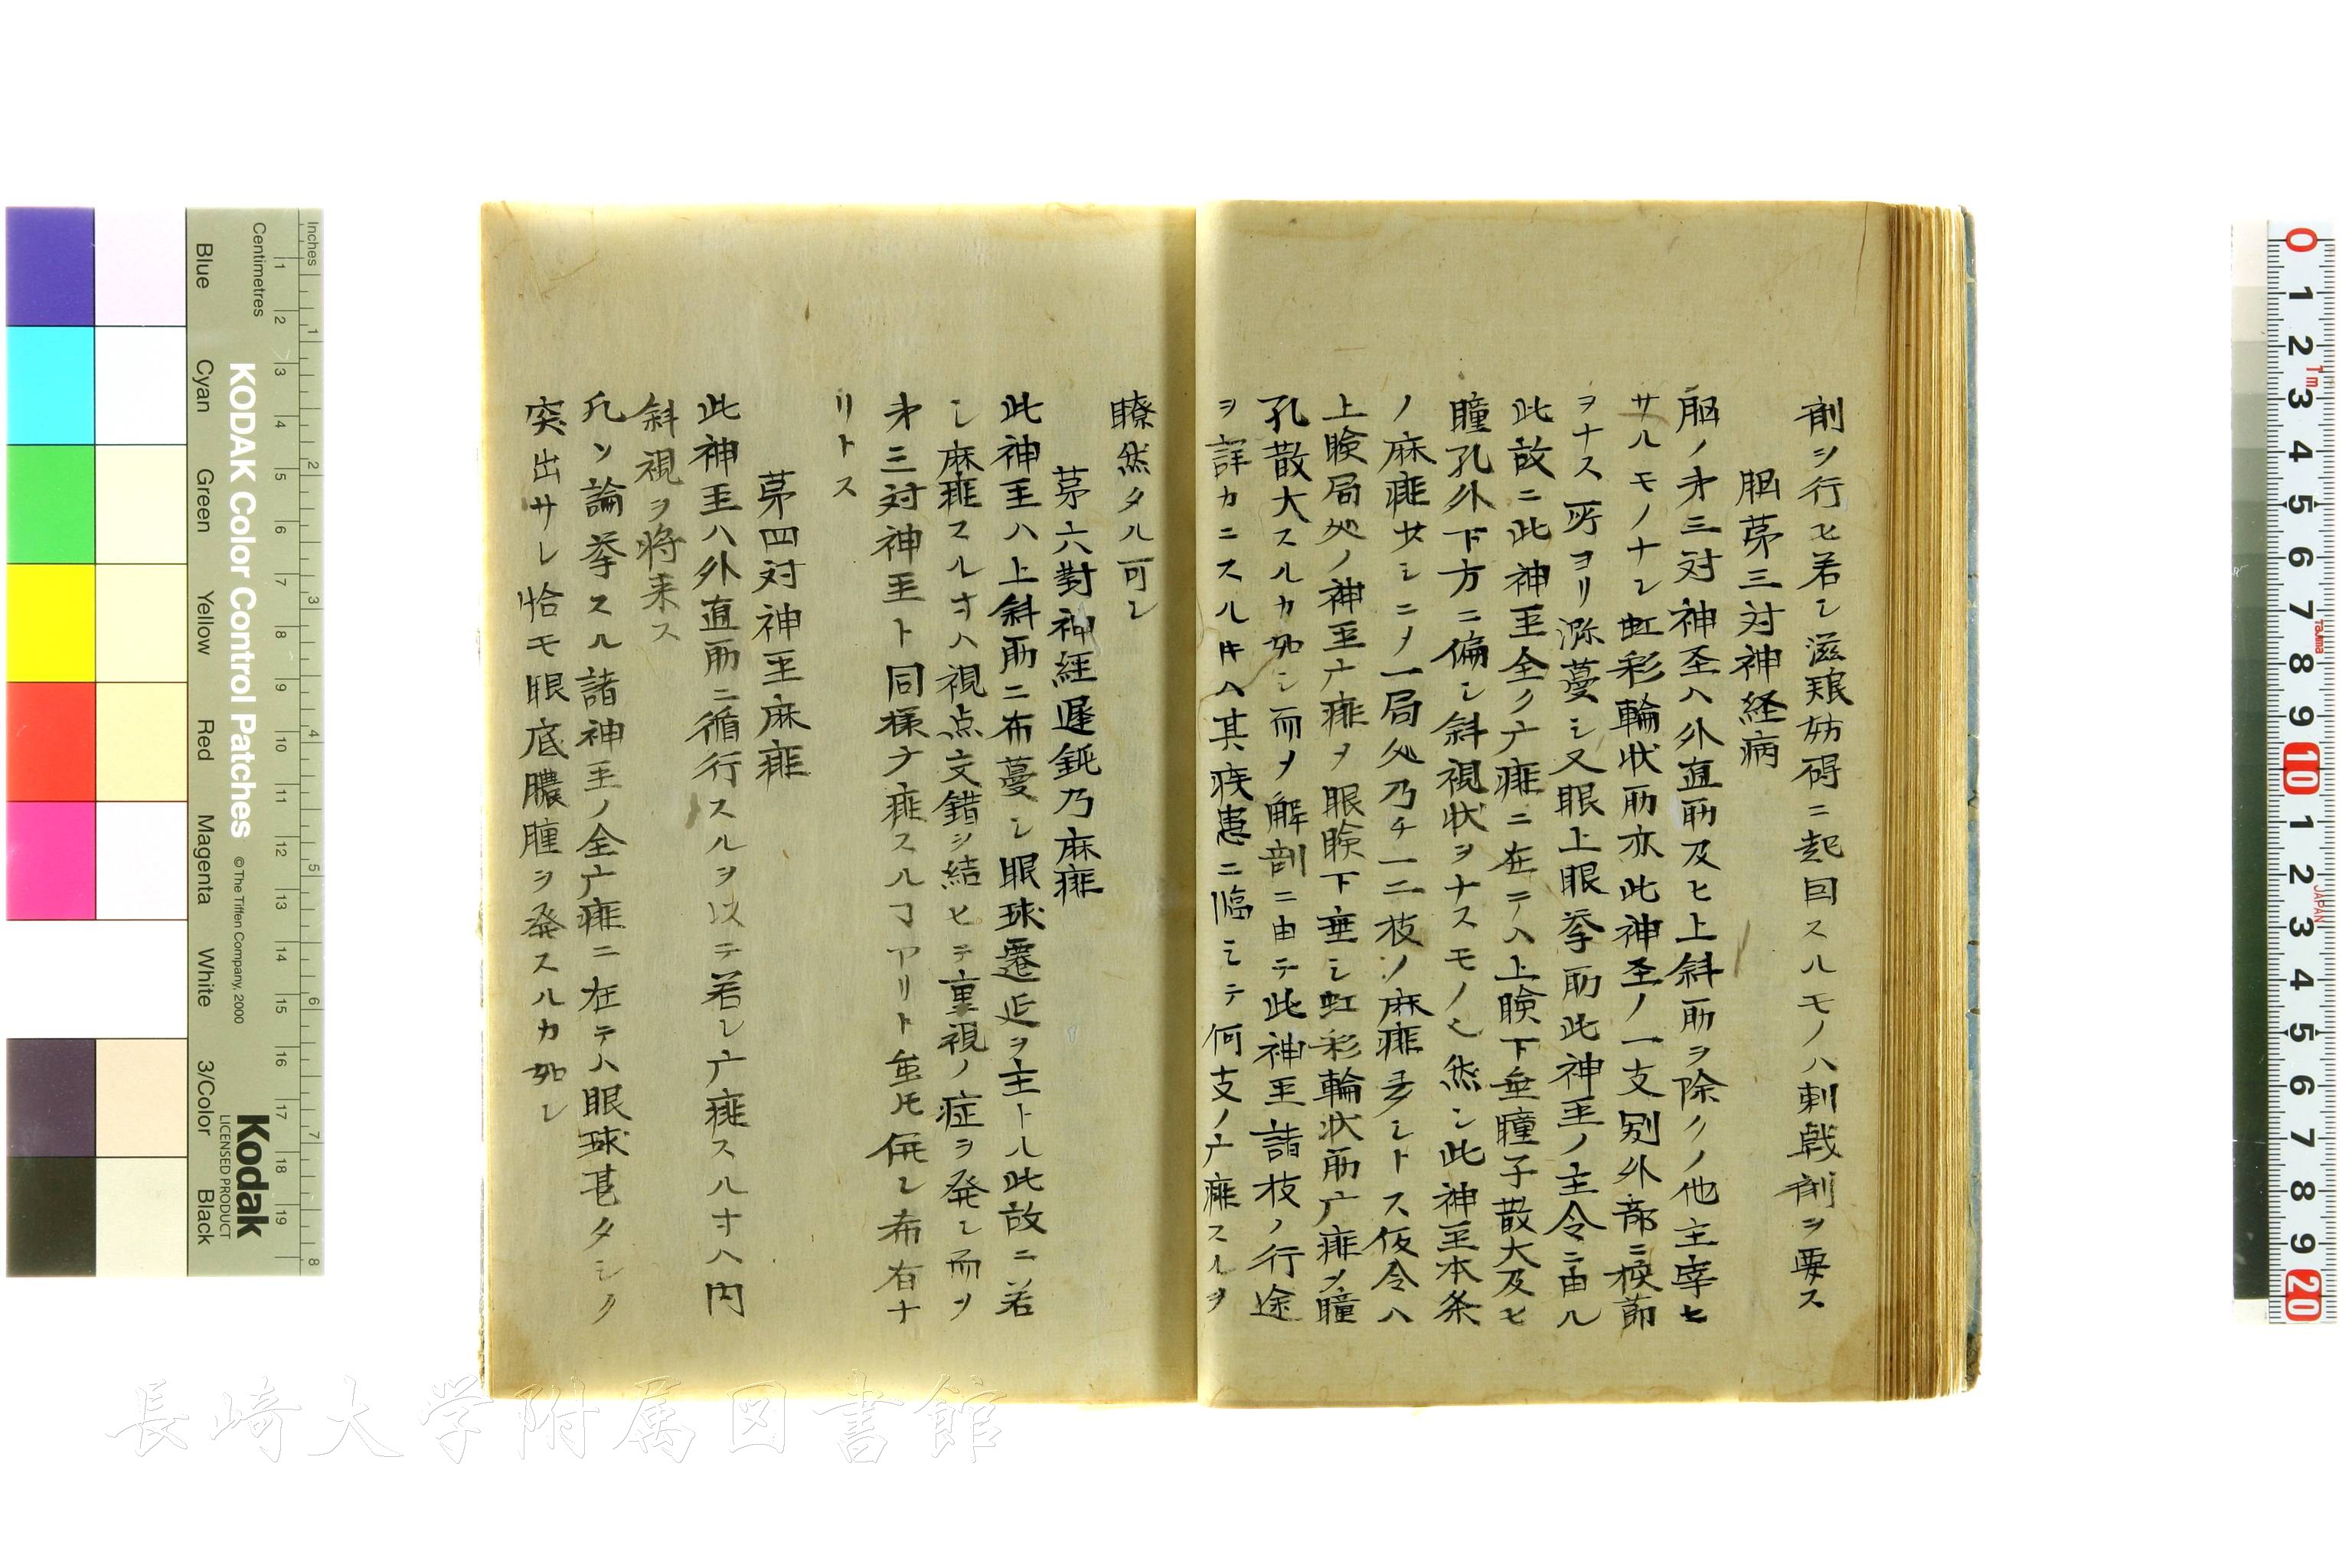 剤ヲ行ヒ若シ滋殖妨碍ニ起因スルモノハ刺戟剤ヲ要ス
脳苐三対神経病
脳ノ㐧三対神圣ハ外直筋及ヒ上斜筋ヲ除クノ他主宰セ
サルモノナシ虹彩輪状筋亦此神圣ノ一支別外部ニ梜節
ヲナス所ヨリ滁蔓シ又眼上眼挙筋此神圣ノ主令ニ由ル
此故ニ此神圣全ク亡痱ニ在テハ上瞼下垂瞳子散大及ヒ
瞳孔外下方ニ偏シ斜視状ヲナスモノ也然シ此神圣本条
ノ麻痱サシニノ一局処乃チ一二枝ノ麻痱多シトス仮令ハ
上瞼局処ノ神圣亡痱ヲ眼瞼下垂シ虹彩輪状筋亡痱ヲ瞳
孔散大スルカ如シ而ヲ解剖ニ由テ此神圣諸枝ノ行途
ヲ詳カニスルキハ其疾患ニ臨シテ何支ノ亡痱スルヲ
瞭然タル可シ
苐六對神経遅鈍乃麻痱
此神圣ハ上斜筋ニ布蔓シ眼球遷延ヲ主トル此故ニ若
シ麻痱スルオハ視点交錯ヲ結ヒテ重視ノ症ヲ発シ而ヲ
㐧三対神圣ト同様ナ痱スルヿアリト虽𪜈併シ希有ナ
リトス
苐四対神圣麻痱
此神圣ハ外直筋ニ循行スルヲ以テ若シ亡痱スルオハ内
斜視ヲ将来ス
凡ソ論挙スル諸神圣ノ全亡痱ニ在テハ眼球甚タシク
突出サレ恰モ眼底膿腫ヲ発スルカ如シ
Inches
Centimetres
Blue Cyan Green Yellow Red Magenta White 3/Color Black
KODAK Color Control Patches
© The Tiffen Company, 2000
Kodak
LICENSED PRODUCT
長崎大学附属図書館